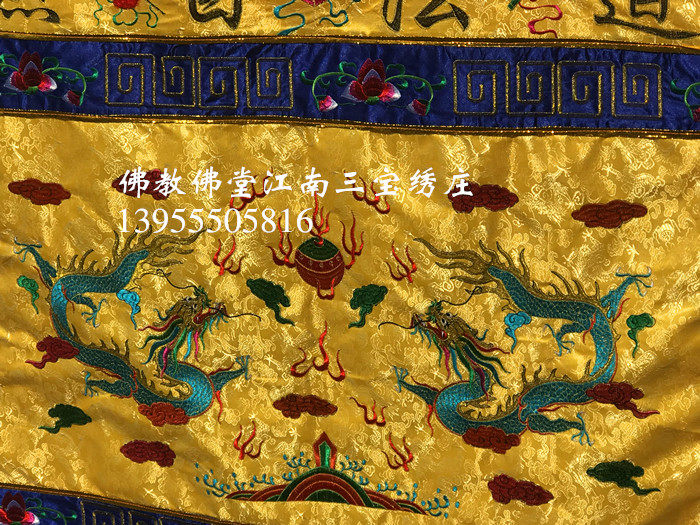 道法自然
佛教佛堂江南三宝绣庄
13955505816